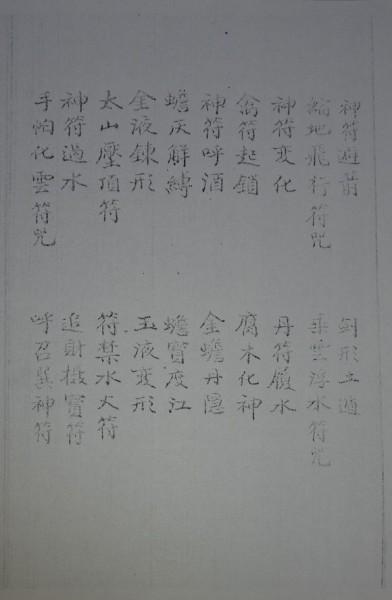 神符避箭
縮地飛行符咒
神符變化
翕符起鎖
神符呼酒
蟾灰解縛
金液鍊形
太山壓頂符
神符過水
手帕化雲符咒
剑形五遁
乘雲浮水符咒
丹符嚴水
腐木化神
金蟾丹隱
蟾寶渡江
玉液變形
符禁水火符
追財搬寶符
呼召巽神符